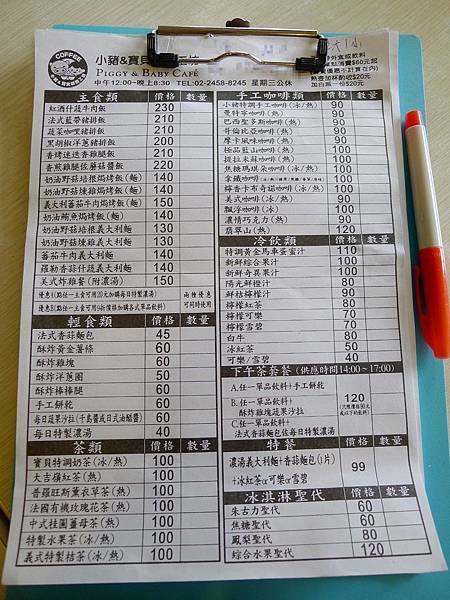 COFFEE
小豬&寶貝
PIGGY & BABY CAFÉ
中午12:00~晚上8:30 TEL:02-2458-8245 星期三公休
加白飯一份$20元
主食類 價格 數量
紅酒什蔬牛肉飯 230
法式藍帶豬排飯 210
蔬菜咖哩豬排飯 210
黑胡椒洋蔥豬排飯 200
香烤迷迭香雞腿飯 200
香煎雞腿佐蘑菇醬飯 220
奶油野菇培根焗烤飯(麵) 140
奶油野菇燻雞焗烤飯(麵) 140
義大利蕃茄牛肉焗烤飯(麵) 150
奶油鮪魚焗烤飯(麵) 140
奶油野菇培根義大利麵 130
奶油野菇燻雞義大利麵 130
蕃茄牛肉義大利麵 140
羅勒香蒜什蔬義大利麵 140
美式炸雞餐(附濃湯) 150
優惠A(點任一主食可用20元加購每日特製濃湯)
優惠B(點任一主食可用9折價格加購各式單品飲料)
兩種優惠
可同時使用
輕食類 價格 數量
法式香蒜麵包 45
酥炸黃金薯條 60
酥炸雞塊 60
酥炸洋蔥圈 50
酥炸棒棒腿 60
手工餅乾 60
每日蔬果沙拉(千島醬或日式油醋醬) 60
每日特製濃湯 40
茶類 價格 數量
寶貝特調奶茶(冰/熱) 100
大吉嶺紅茶(熱) 100
普羅旺斯薰衣草茶(熱) 100
法國有機玫瑰花茶(熱) 100
中式桂圓薑母茶(熱) 100
特製水果茶(冰/熱) 100
義式特製桔茶(冰/熱) 100
手工咖啡類 價格 數量
小豬特調手工咖啡(冰/熱) 90
曼特寧咖啡(熱) 90
巴西聖多斯咖啡(熱) 90
哥倫比亞咖啡(熱) 90
摩卡風味咖啡(熱) 90
極品藍山咖啡(熱) 100
提拉米蘇咖啡(熱) 100
焦糖瑪琪朵咖啡(冰/熱) 100
拿鐵咖啡 100
檸香卡布奇諾咖啡(冰/熱) 100
美式咖啡(冰/熱) 90
飄浮咖啡(冰) 100
濃情巧克力(熱) 90
翡翠山(熱) 120
冷飲類 價格 數量
特調黃金馬車蛋蜜汁 110
新鮮綜合果汁 100
新鮮奇異果汁 100
陽光鮮橙汁 80
鮮桔檸檬汁 90
檸檬紅茶 80
檸檬可樂 70
檸檬雪碧 70
白牛 80
冰紅茶 50
可樂/雪碧 40
下午茶套餐 (供應時間14:00~17:00)
A.任一單品飲料+手工餅乾
B.任一單品飲料+
酥炸雞塊蔬果沙拉
C.任一單品飲料+
法式香蒜麵包佐每日特製濃湯
120
特餐 價格 數量
濃湯義大利麵+香蒜麵包(1片)
+冰紅茶or可樂or雪碧
99
冰淇淋聖代 價格 數量
朱古力聖代 60
焦糖聖代 60
鳳梨聖代 80
綜合水果聖代 120